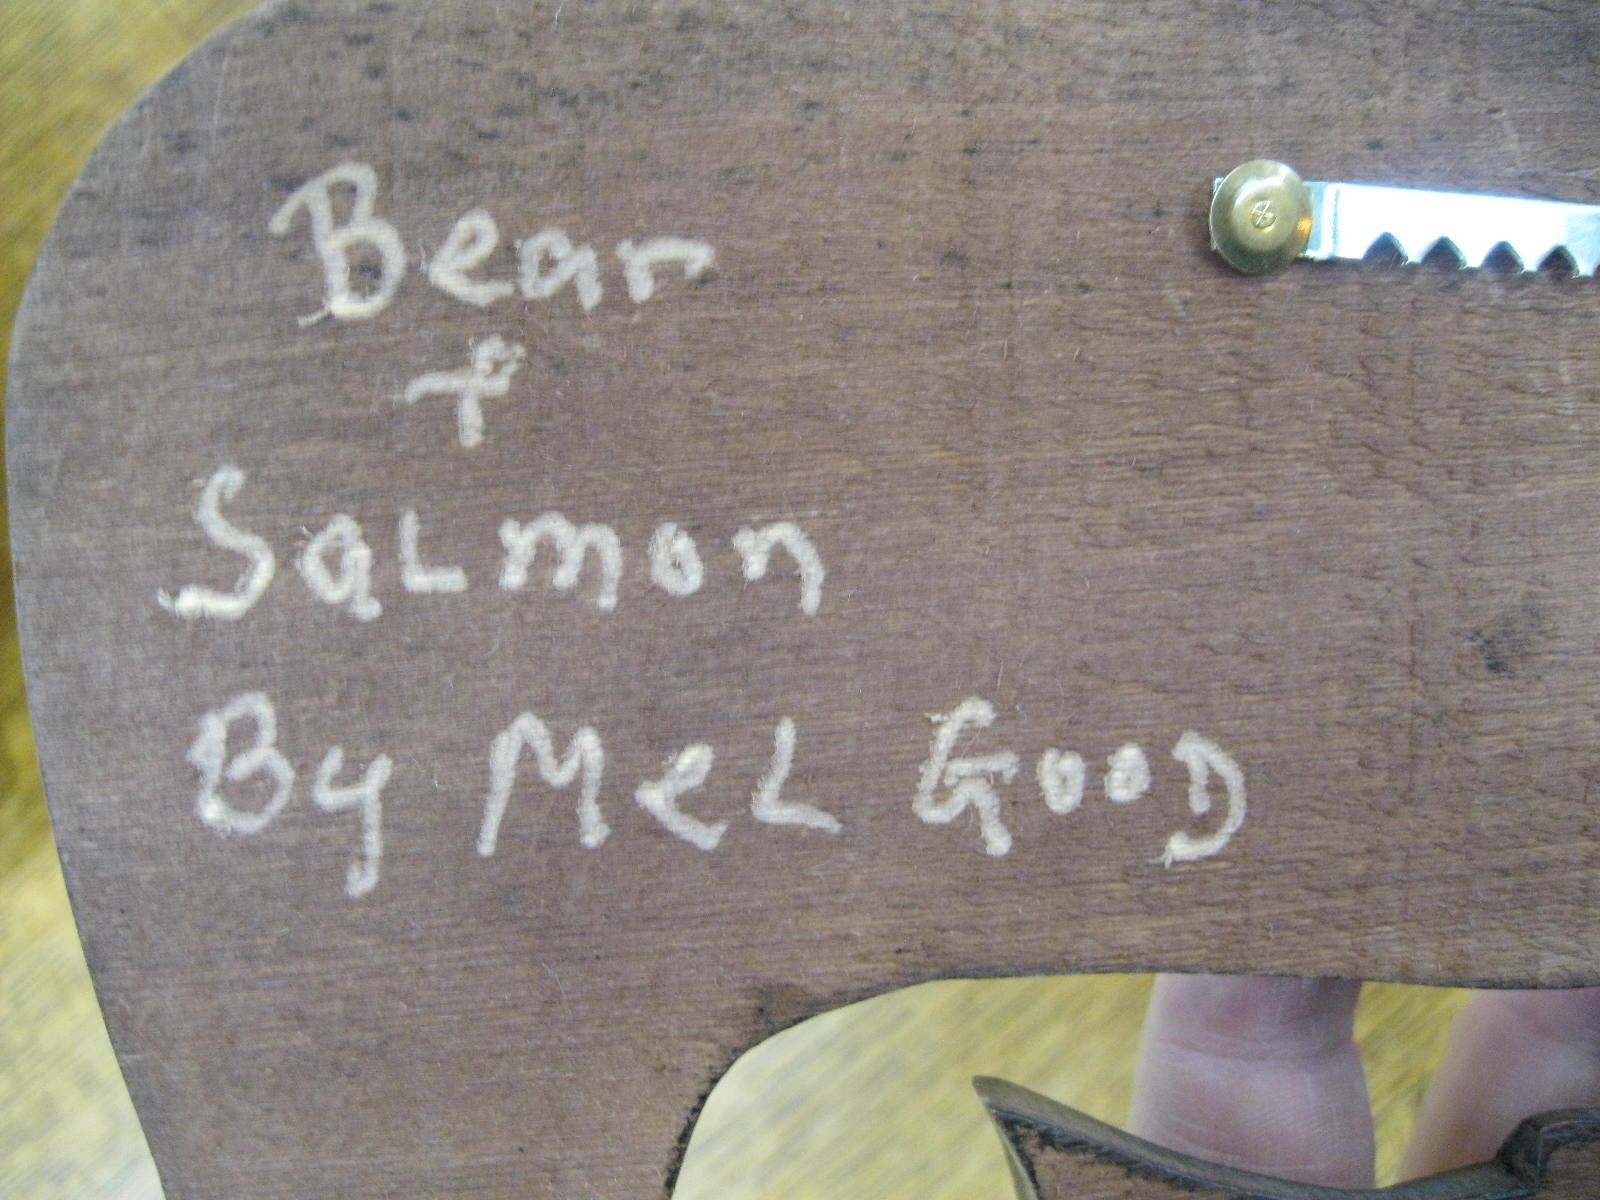 Bear
+
SaLmon
By MeL GooD